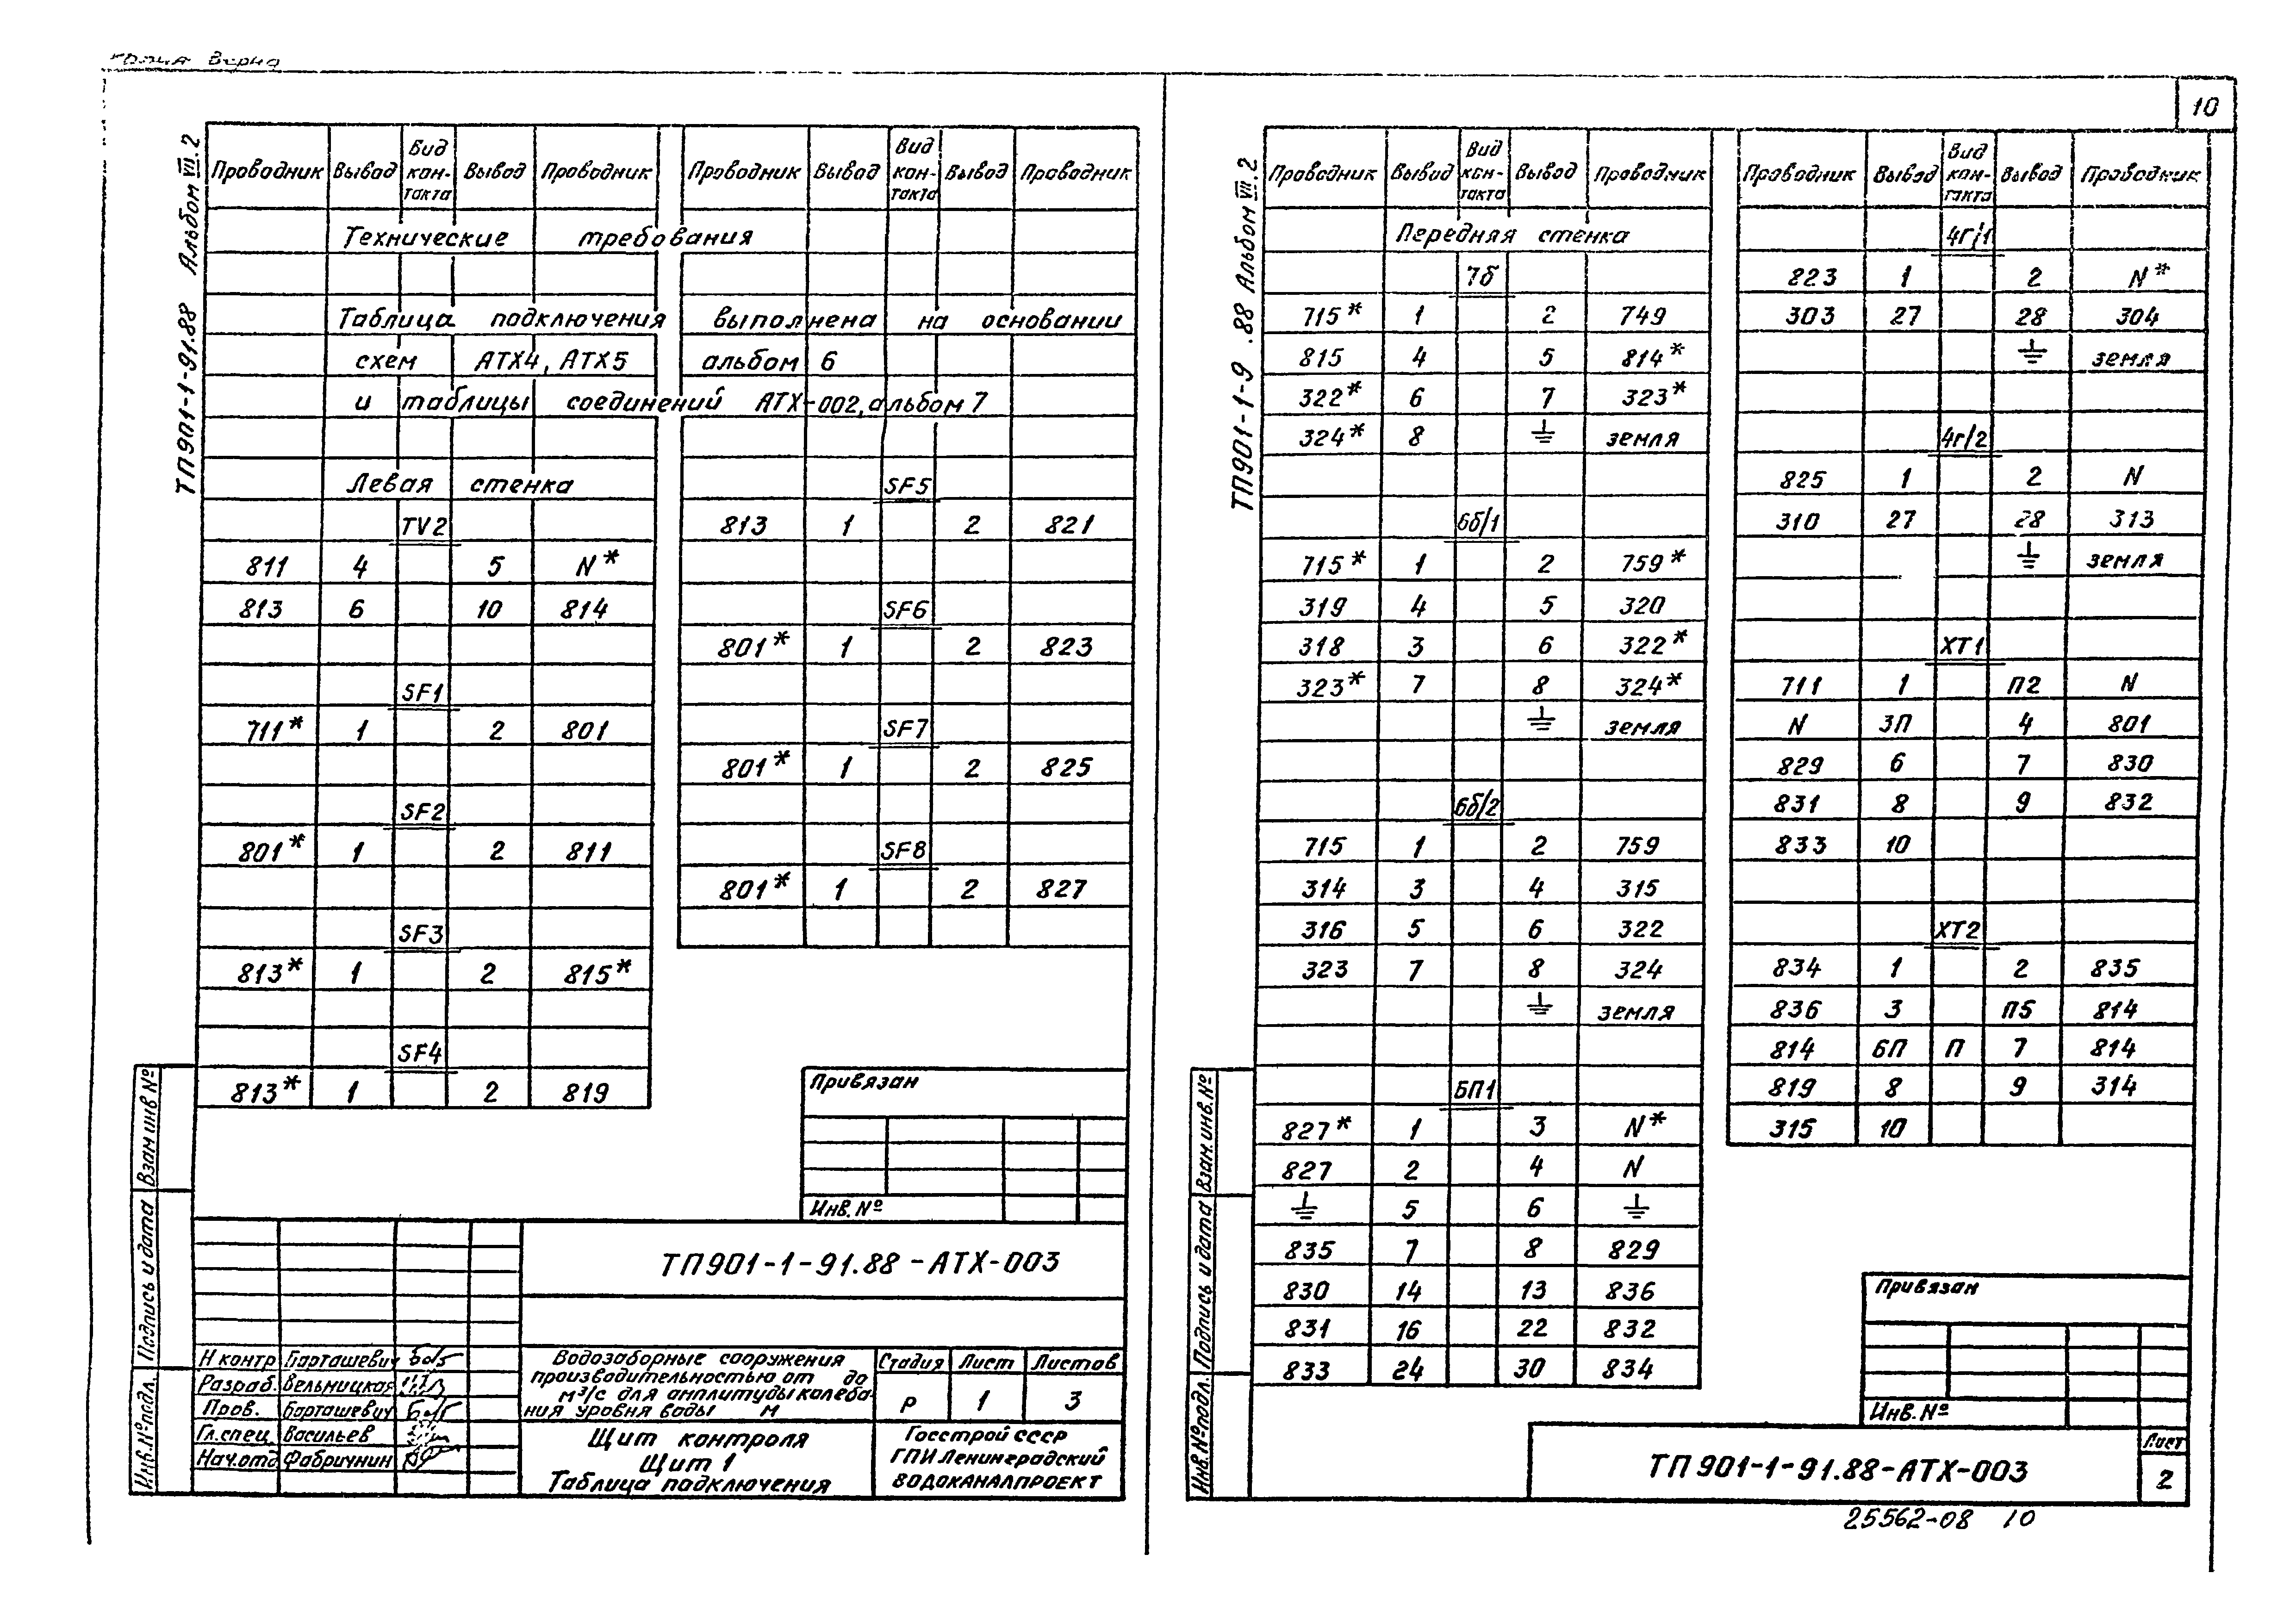 копия верна
10
ТП901-1-91.88 Альбом VII.2
Проводник Вывод Вид контакта Вывод Проводник Проводник Вывод Вид контакта Вывод Проводник
Технические требования
Таблица подключения выполнена на основании
схем АТХ4, АТХ5 альбом 6
и таблицы соединений АТХ-002, альбом 7
Левая стенка
TV2
811 4 5 N*
813 6 10 814
SF1
711* 1 2 801
SF2
801* 1 2 811
SF3
813* 1 2 815*
SF4
813* 1 2 819
SF5
813 1 2 821
SF6
801* 1 2 823
SF7
801* 1 2 825
SF8
801* 1 2 827
Привязан
Инв.№
Взам инв №
Подпись и дата
Инв.№ подл.
ТП901-1-91.88-АТХ-003
Н контр Барташевич
Разраб. Вельницкая
Пров. Барташевич
Гл.спец. Васильев
Нач.отд Фабричнин
Водозаборные сооружения
производительностью от до
м³/с для амплитуды колеба-
ния уровня воды м
Стадия Лист Листов
Р 1 3
Щит контроля
Щит 1
Таблица подключения
Госстрой СССР
ГПИ Ленинградский
ВОДОКАНАЛПРОЕКТ
ТП901-1-9 .88 Альбом VII.2
Проводник Вывод Вид контакта Вывод Проводник Проводник Вывод Вид контакта Вывод Проводник
Передняя стенка
7б
715* 1 2 749
815 4 5 814*
322* 6 7 323*
324* 8 ⏚ земля
6б/1
715* 1 2 759*
319 4 5 320
318 3 6 322*
323* 7 8 324*
⏚ земля
6б/2
715 1 2 759
314 3 4 315
316 5 6 322
323 7 8 324
⏚ земля
БП1
827* 1 3 N*
827 2 4 N
⏚ 5 6 ⏚
835 7 8 829
830 14 13 836
831 16 22 832
833 24 30 834
4г/1
823 1 2 N*
303 27 28 304
⏚ земля
4г/2
825 1 2 N
310 27 28 313
⏚ земля
ХТ1
711 1 П2 N
N 3П 4 801
829 6 7 830
831 8 9 832
833 10
ХТ2
834 1 2 835
836 3 П5 814
814 6П П 7 814
819 8 9 314
315 10
Привязан
Инв.№
Взам.инв.№
Подпись и дата
Инв.№ подл.
ТП 901-1-91.88-АТХ-003
Лист
2
25562-08 10